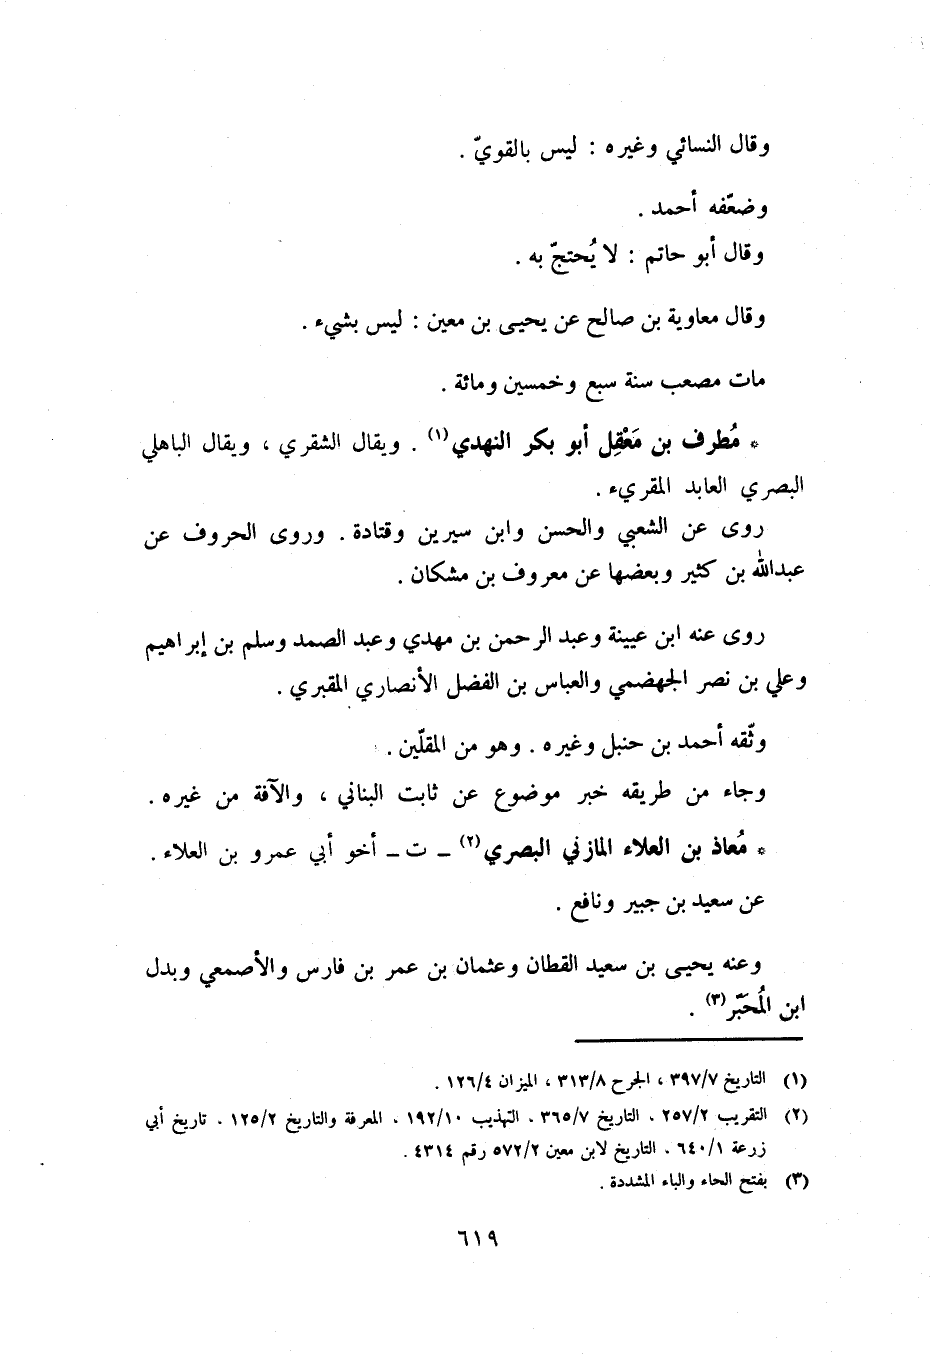 وقال النسائي وغيره : ليس بالقويّ .
وضعّفه أحمد .
وقال أبو حاتم : لا يُحتجّ به .
وقال معاوية بن صالح عن يحيى بن معين : ليس بشيء .
مات مصعب سنة سبع وخمسين ومائة .
* مُطرف بن مَعْقِل أبو بكر النهدي(١) . ويقال الشقري ، ويقال الباهلي
البصري العابد المقريء .
روى عن الشعبي والحسن وابن سيرين وقتادة . وروى الحروف عن
عبدالله بن كثير وبعضها عن معروف بن مشكان .
روى عنه ابن عيينة وعبد الرحمن بن مهدي وعبد الصمد وسلم بن إبراهيم
وعلي بن نصر الجهضمي والعباس بن الفضل الأنصاري المقبري .
وثّقه أحمد بن حنبل وغيره . وهو من المقلّين .
وجاء من طريقه خبر موضوع عن ثابت البناني ، والآفة من غيره .
* مُعاذ بن العلاء المازني البصري(٢) ـ ت ـ أخو أبي عمرو بن العلاء .
عن سعيد بن جبير ونافع .
وعنه يحيى بن سعيد القطان وعثمان بن عمر بن فارس والأصمعي وبدل
ابن المُحَبّر(٣) .
(١) التاريخ ٣٩٧/٧ ، الجرح ٣١٣/٨ ، الميزان ١٢٦/٤ .
(٢) التقريب ٢٥٧/٢ . التاريخ ٣٦٥/٧ . التهذيب ١٩٢/١٠ . المعرفة والتاريخ ١٢٥/٢ . تاريخ أبي
زرعة ٦٤٠/١ . التاريخ لابن معين ٥٧٢/٢ رقم ٤٣١٤ .
(٣) بفتح الحاء والباء المشددة .
٦١٩